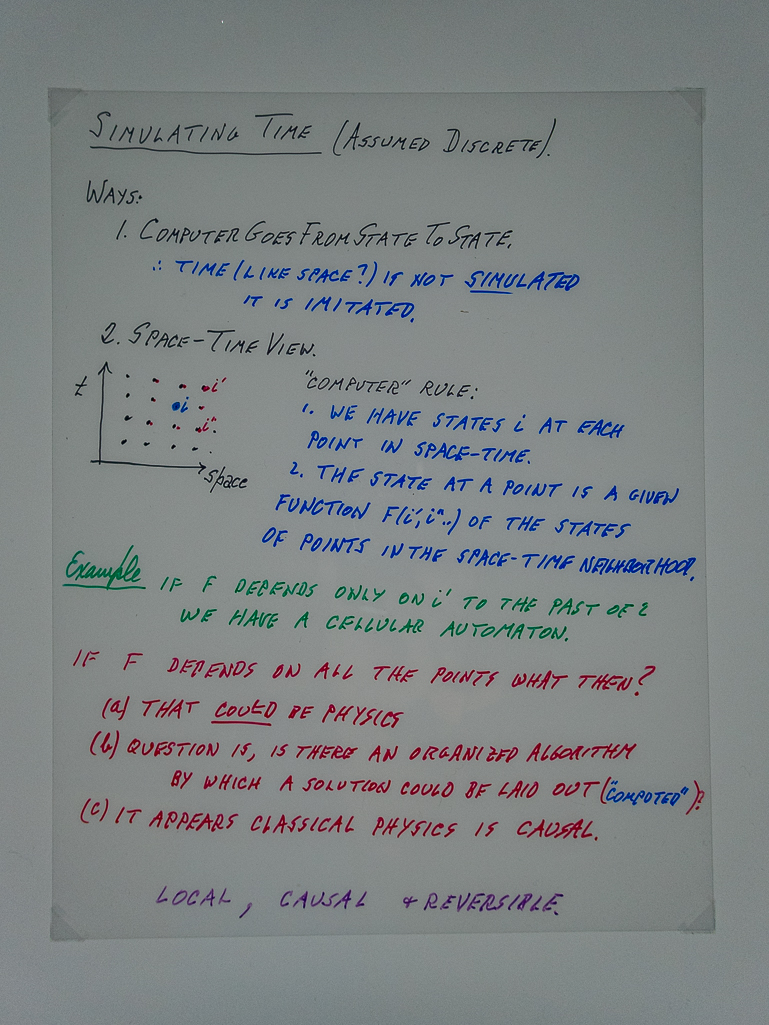 SIMULATING TIME (ASSUMED DISCRETE).
WAYS:
1. COMPUTER GOES FROM STATE TO STATE.
∴ TIME (LIKE SPACE?) IS NOT SIMULATED
IT IS IMITATED.
2. SPACE-TIME VIEW.
t
i'
i
i"
space
"COMPUTER" RULE:
1. WE HAVE STATES i AT EACH
POINT IN SPACE-TIME.
2. THE STATE AT A POINT IS A GIVEN
FUNCTION F(i', i"..) OF THE STATES
OF POINTS IN THE SPACE-TIME NEIGHBORHOOD.
Example IF F DEPENDS ONLY ON i' TO THE PAST OF i
WE HAVE A CELLULAR AUTOMATON.
IF F DEPENDS ON ALL THE POINTS WHAT THEN?
(a) THAT COULD BE PHYSICS
(b) QUESTION IS, IS THERE AN ORGANIZED ALGORITHM
BY WHICH A SOLUTION COULD BE LAID OUT ("COMPUTED")?
(c) IT APPEARS CLASSICAL PHYSICS IS CAUSAL.
LOCAL, CAUSAL + REVERSIBLE.